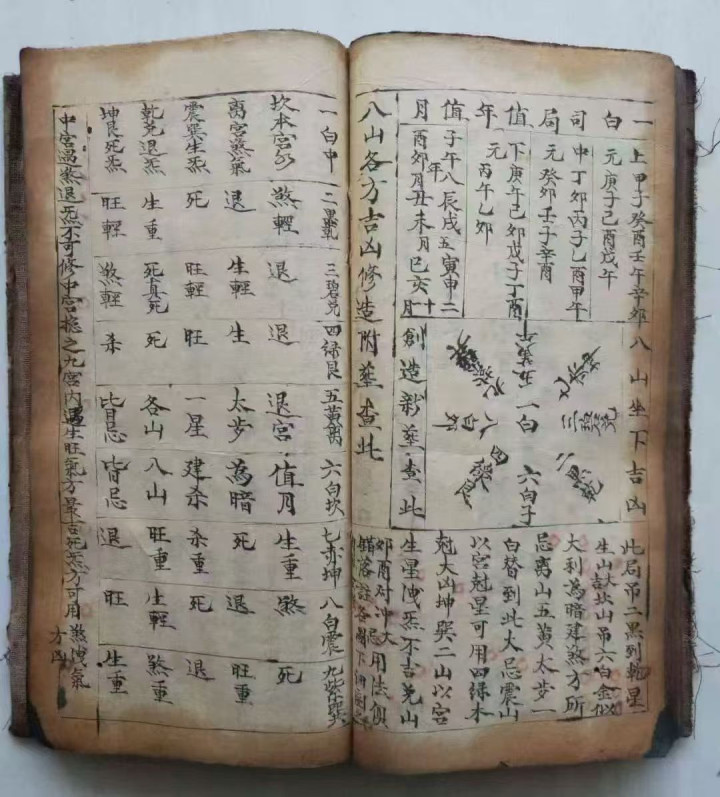 一白司局值年值月
上甲子癸酉壬午辛卯
元庚子己酉戊午
中丁卯丙子乙酉甲午
元癸卯壬子辛酉
下庚午己卯戊子丁酉
元丙午乙卯
子午八辰戌五寅申二
年
酉卯月丑未月巳亥十月
八山坐下吉凶
二黑乾
三碧兌
一白
六白子
五黃午
八白
九紫巽
四綠艮
創造新塟查此
此局吊二黑到乾星
生山大吉坎山吊六白金
大利為暗建煞方所
忌離山五黃太步一
白替到此大忌震山
以宮尅星可用四綠木
尅大凶坤巽二山以宮
生星洩炁不吉兌山
卯酉对冲大忌用法須
八山各方吉凶修造附塟查此
一白中 二黑乾 三碧兌 四綠艮 五黃离 六白坎 七赤坤 八白震 九紫巽
坎本宮 煞輕 退 退 退宮 值月 生重 煞 死
离宮煞氣 退 生輕 生 太步 為暗 死 退 旺重
震巽生炁 死 旺輕 旺 一星 建杀 杀重 死 退
乾兌退炁 生重 死真死 死 各山 八山 旺重 生輕 煞重
坤艮死炁 旺輕 煞輕 杀 皆忌 皆忌 退 旺 生重
中宮遇煞退炁不可修中宮總之九宮內遇生旺氣方最吉死炁方可用煞洩氣方凶